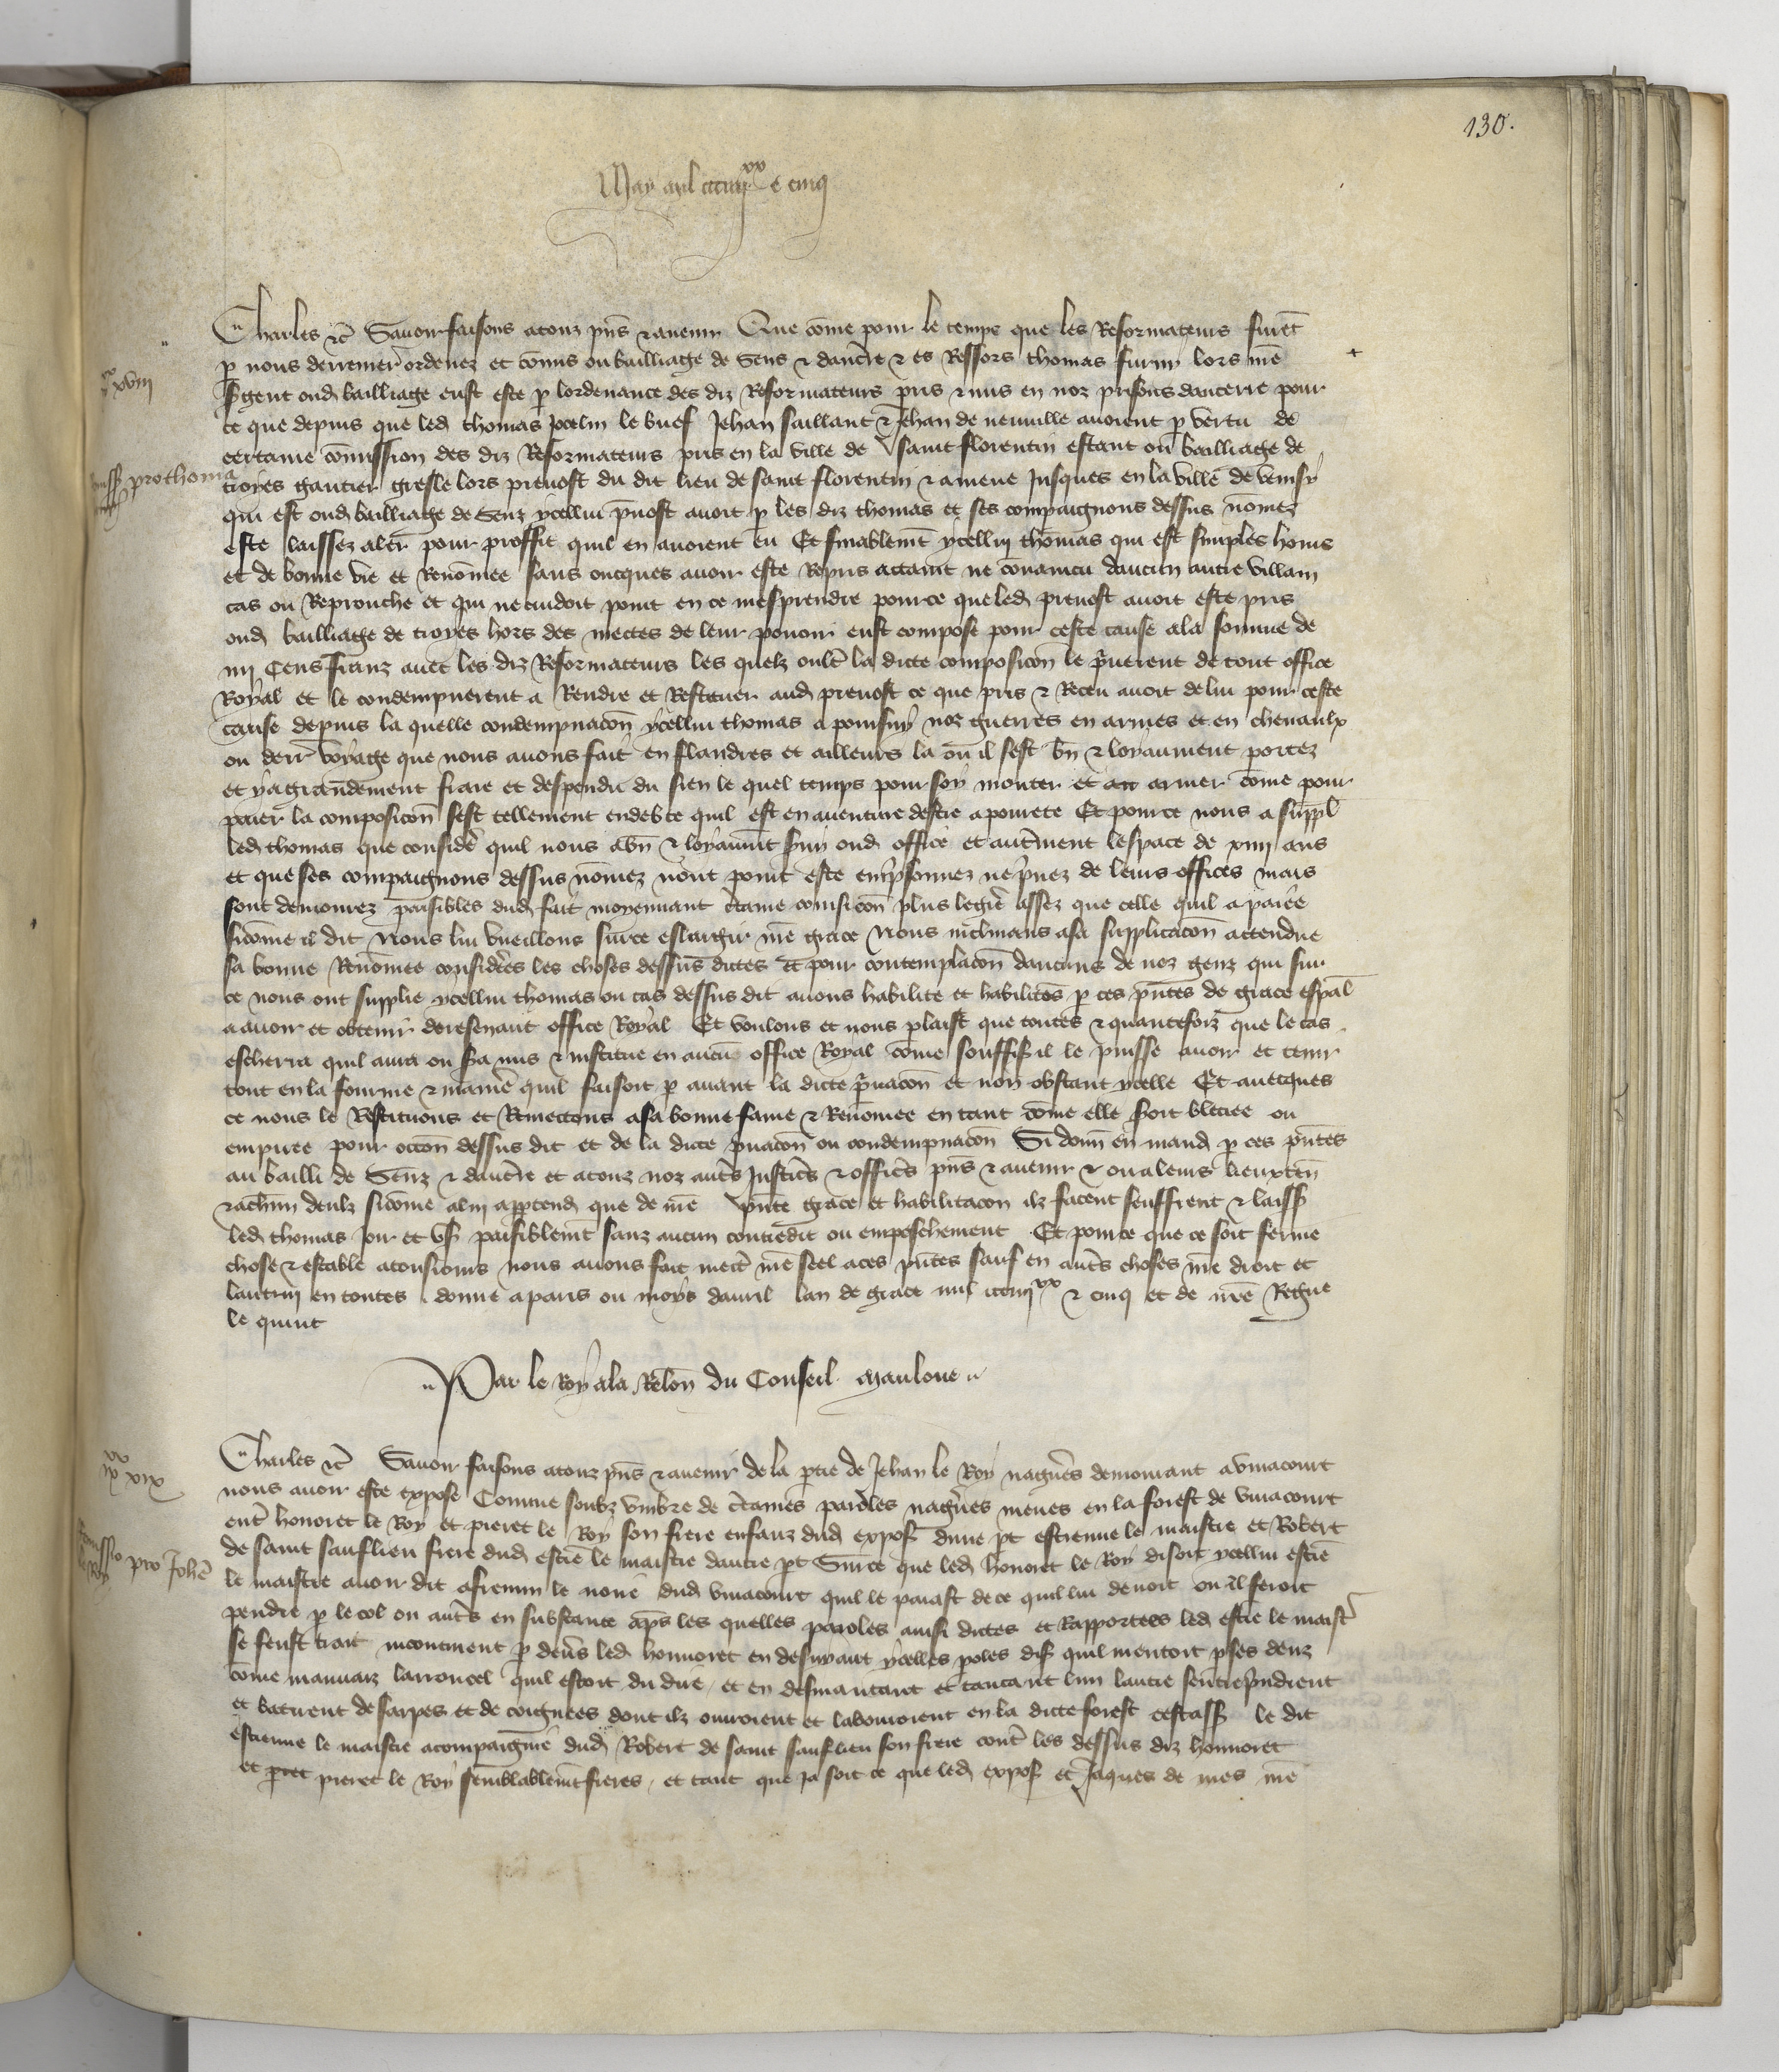 130.
May mil ccciiij xx e cinq
Charles &c Savoir faisons a touz pñs & avenir Que cõme pour le temps que les Reformateurs furẽt
p nous derremer̃ ordenez et cõmis ou bailliage de Sens & daucẽre & es Ressors thomas furny lors nr̃e
s̃gent oud bailliage eust este p lordenance des diz Reformateurs pris & mis en noz prisons daucerre pour
ce que depuis que led thomas Jocelin le buef Jehan saillant & Jehan de neuville avoient p vertu de
certaine cõmission des diz Reformateurs pris en la ville de saint florentin estant ou bailliage de
troyes gautier gresle lors prevost du dit lieu de saint florentin & amene Jusques en la ville de venisy
qui est oud bailliage de Senz ycellui p̃vost avoit p les diz thomas et ses compaignons dessus nõmez
este laissez aler pour proffit quil en avoient eu Et finablemẽt ycellui thomas qui est simples homs
et de bonne vie et Renõmee sans oncques avoir este Repris attaint ne convaincu daucun autre villain
cas ou Reprouche et qui ne cuidoit point en ce mesprendre pource que led prevost avoit este pris
oud bailliage de troyes hors des mectes de leur pouoir eust compose pour ceste cause a la somme de
iiij Cens franz avec les diz Reformateurs les quelz oult̃ la dicte composicõn le p̃verent de tout office
Royal et le condempnerent a Rendre et Restituer aud prevost ce que pris & Receu avoit de lui pour ceste
cause depuis la quelle condempnacõn ycellui thomas a poursuy noz guerres en armes et en chevaulx
ou derr̃ voyage que nous avons fait en flandres et ailleurs la ou il sest bñ & loyaument portez
et y a grandement fraie et despendu du sien le quel temps pour soy monter et armer cõme pour
paier la composicõn sest tellement endebte quil est en aventure destre a povrete Et pource nous a suppl̃
led thomas que considẽ quil nous a bñ & loyaumt̃ s̃vy oud office et autrement lespace de xiiij ans
et que ses compaignons dessus nõmez nont point este emp̃sonnez ne p̃vez de leurs offices mais
sont demourez paisibles dud fait moyennant c̃taine composicõn plus legiẽ assez que celle quil a paiee
sicõme il dit Nous lui vueillons sur ce eslargir nr̃e grace Nous inclinans a sa supplicacõn attendue
sa bonne Renõmee consideres les choses dessus dictes Et pour contemplacõn daucuns de noz genz qui sur
ce nous ont supplie ycellui thomas ou cas dessus dit avons habilite et habilitõs p ces p̃ntes de grace esp̃al
a avoir et obtenir doresenavant office Royal Et voulons et nous plaist que toutes & quantesfoiz que le cas
escherra quil aura ou s̃a mis & institue en aucũ office Royal cõme souffisã il le puisse avoir et tenir
tout en la fourme & manie᷑ quil faisoit p avant la dicte p̃vacõn et non obstant ycelle Et avecques
ce nous le Restituons et Remectons a sa bonne fame & Renõmee en tant cõme elle s̃oit bleciee ou
empiree pour occõn dessus dit et de la dicte p̃vacõn ou condempnacõn Si donñ en mand p ces p̃ntes
au bailli de Senz & daucẽre et a touz noz aut̃s Justicĩs & officĩs pñs & avenir & ou a leurs lieuxteñ
& a ch̃un deulz sicõme a lui app̃tend que de nr̃e p̃nte grace et habilitacon ilz facent seuffrent & laiss̃
led thomas Joir et us̃ paisiblemt̃ sanz aucun contredit ou empeschement Et pource que ce soit ferme
chose & estable a tousiours nous avons fait mect̃ nr̃e seel a ces p̃ntes sauf en aut̃s choses nr̃e droit et
lautrui en toutes donne a paris ou moys davril lan de grace mil ccciiij xx & cinq et de nr̃e Regne
le quint
Par le Roy a la Relõn du Conseil Mauloue
Charles &c Savoir faisons a touz pñs & avenir de la ptie de Jehan le Roy nagũes demourant a vinacourt
nous avoir este expose Comme soubz umbre de c̃taines paroles nagũes meues en la forest de vinacourt
ent̃ honoret le Roy et pieret le Roy son frere enfanz dud expos̃ dune pt estienne le maistre et Robert
de saint sauflieu frere dud estiẽ le maistre dautre pt Sur ce que led honoret le Roy disoit ycellui estiẽ
le maistre avoir dit a fremin le noue dud vinacourt quil le paiast de ce quil lui devoit ou il feroit
pendre p le col ou aut̃s en substance ap̃s les quelles paroles ainsi dictes et Rapportees led estie le maist̃
se feust trait incontinent p devs̃ led honnoret en desuyant ycelles proles dis̃ quil mentoit p ses denz
cõme mauvaiz larroncel quil estoit du dire et en desmantant et tancant lun lautre sentrep̃ndirent
et batirent de sarpes et de coignees dont ilz ouvroient et labouroient en la dicte forest cestass̃ le dit
estienne le maistre acompaigne dud Robert de saint sauflieu son frere cont̃ les dessus diz honnoret
et pieret le Roy semblablemt̃ freres et tant que ja soit ce que led expos̃ et Jaques de mes nr̃e
xviij
pro thoma
xix
pro Johẽ